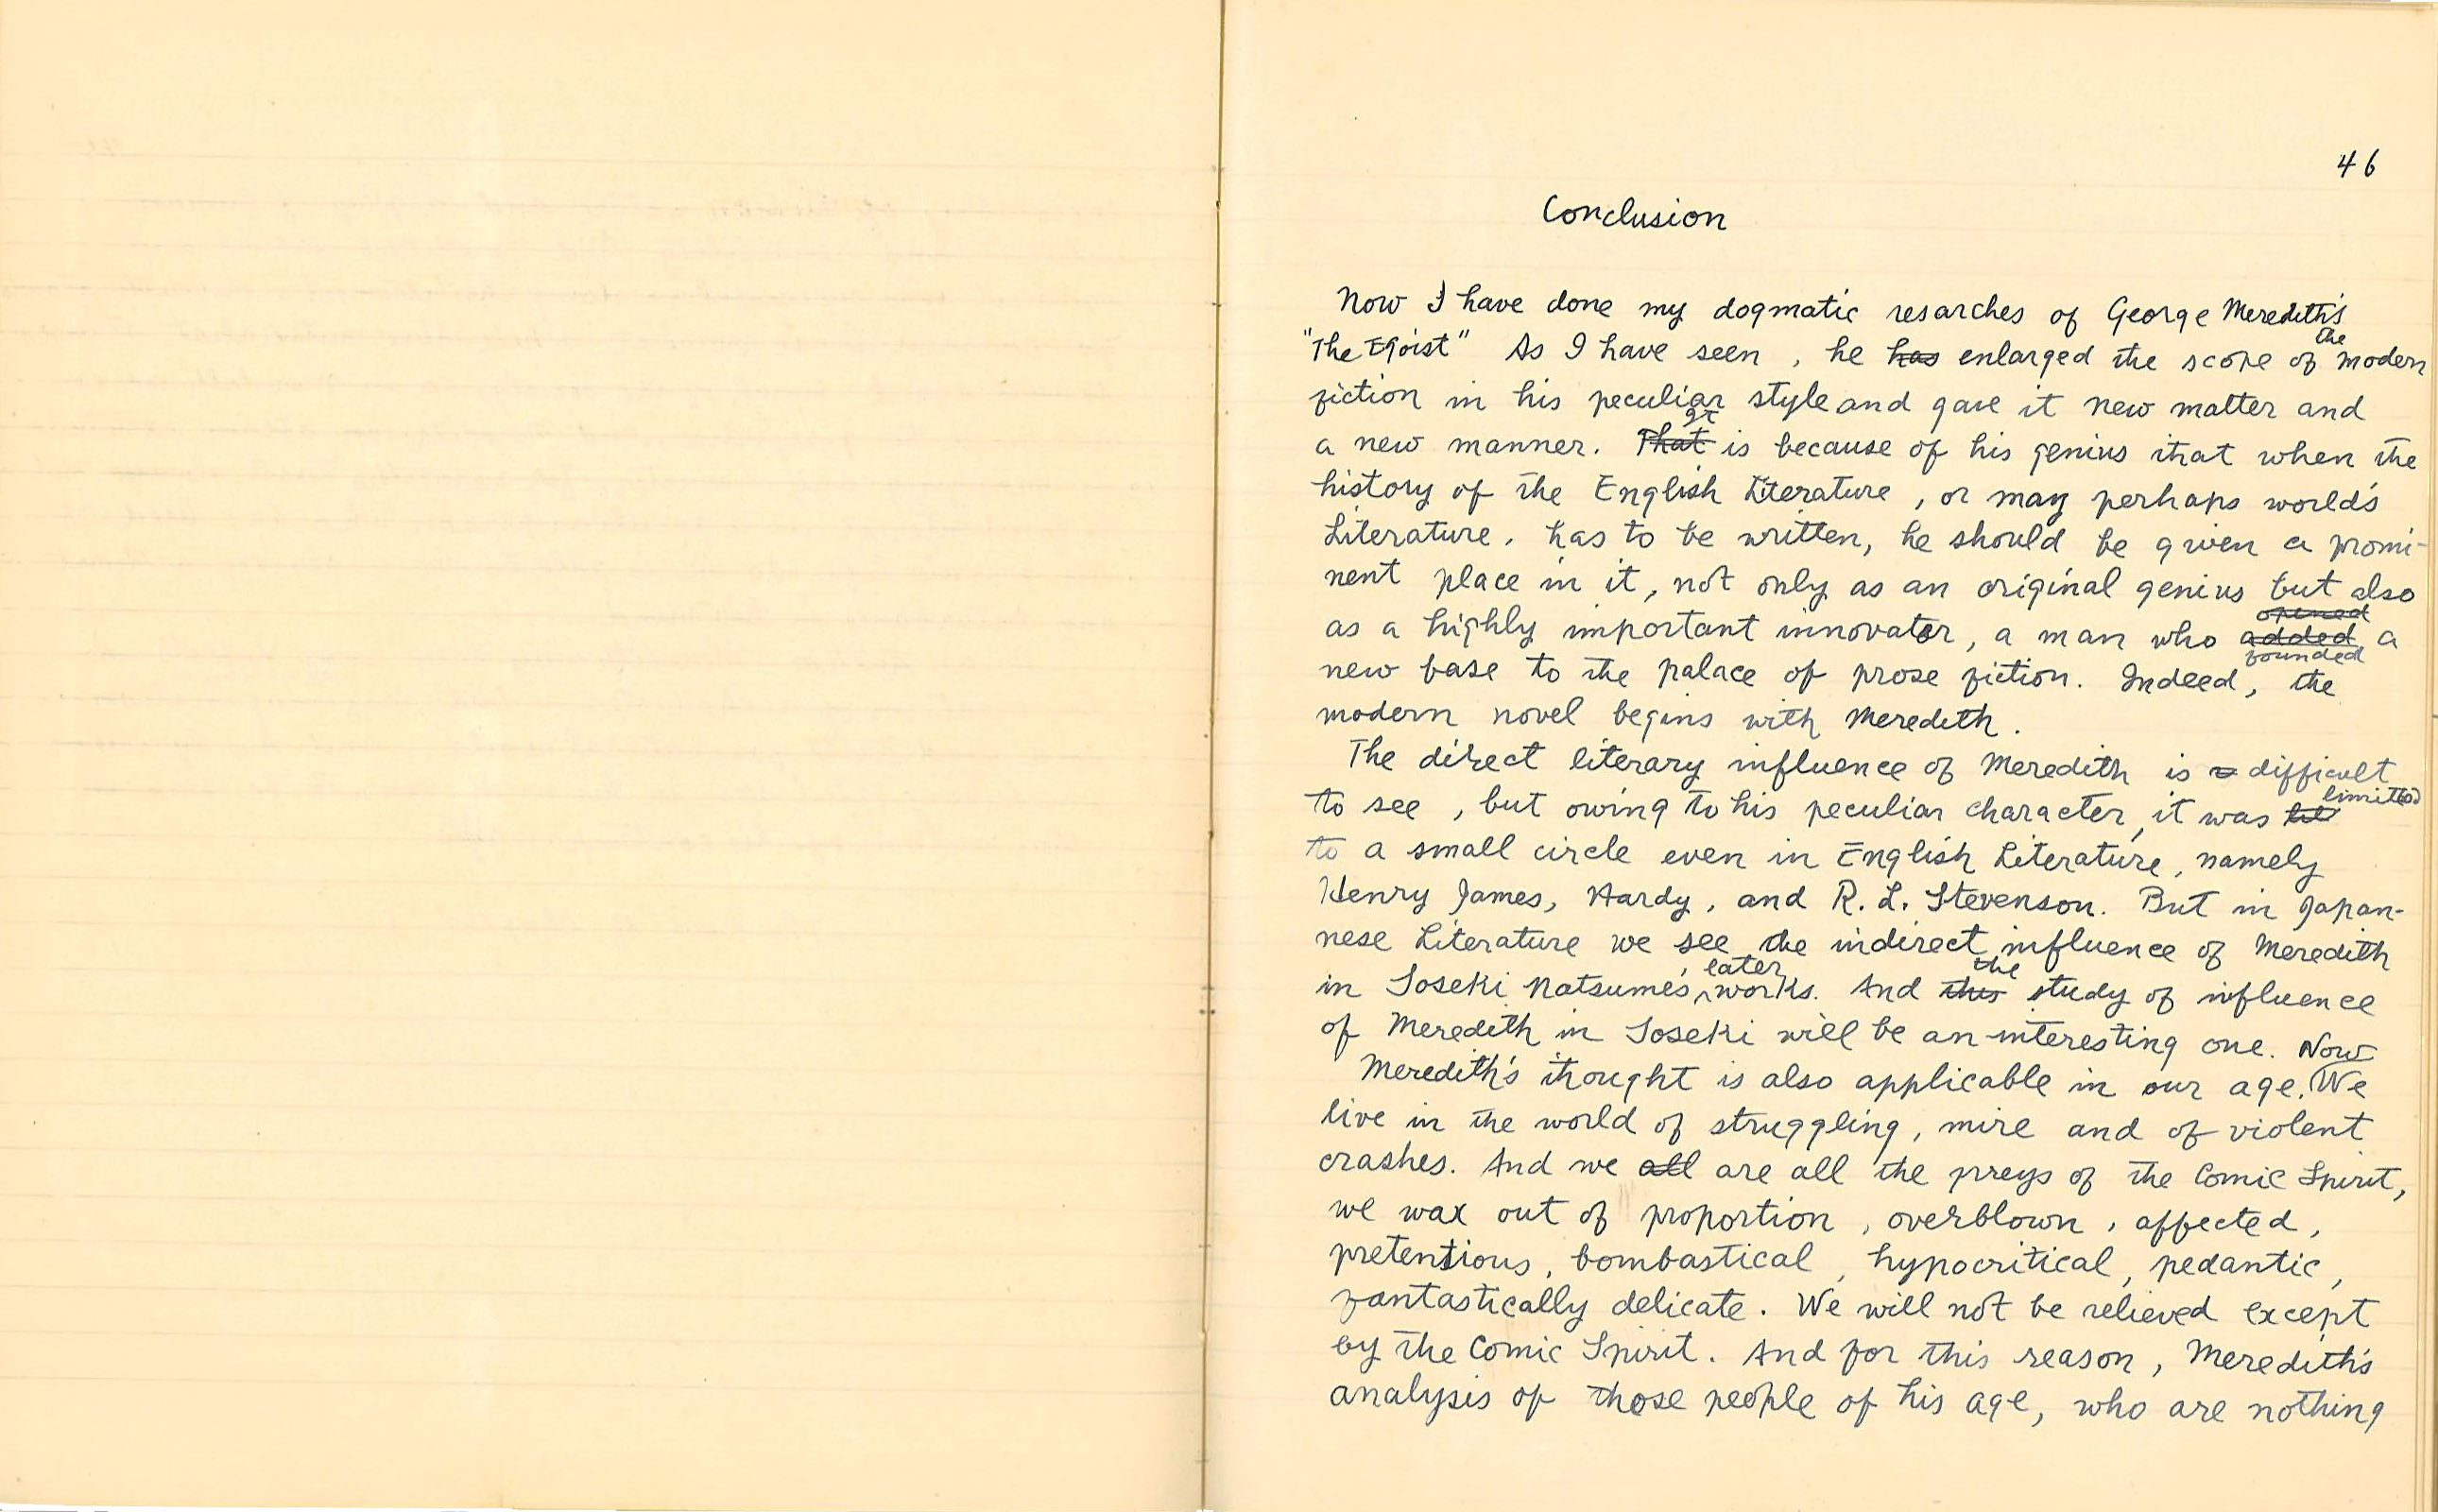 46
Conclusion
Now I have done my dogmatic resarches of George Meredith's
"The Egoist" As I have seen, he has enlarged the scope of the modern
fiction in his peculiar style and gave it new matter and
a new manner. That It is because of his genius that when the
history of the English Literature, or may perhaps world's
Literature, has to be written, he should be given a promi-
nent place in it, not only as an original genius but also
as a highly important innovator, a man who added opened founded a
new base to the palace of prose fiction. Indeed, the
modern novel begins with Meredith.
The direct literary influence of Meredith is difficult
to see, but owing to his peculiar character, it was limitted
to a small circle even in English Literature, namely
Henry James, Hardy, and R. L. Stevenson. But in Japan-
nese Literature we see the indirect influence of Meredith
in Soseki Natsume's later works. And this the study of influence
of Meredith in Soseki will be an interesting one. Now
Meredith's thought is also applicable in our age. We
live in the world of struggling, mire and of violent
crashes. And we all are all the preys of the Comic Spirit,
we wax out of proportion, overblown, affected,
pretentious, bombastical, hypocritical, pedantic,
fantastically delicate. We will not be relieved except
by the Comic Spirit. And for this reason, Meredith's
analysis of those people of his age, who are nothing